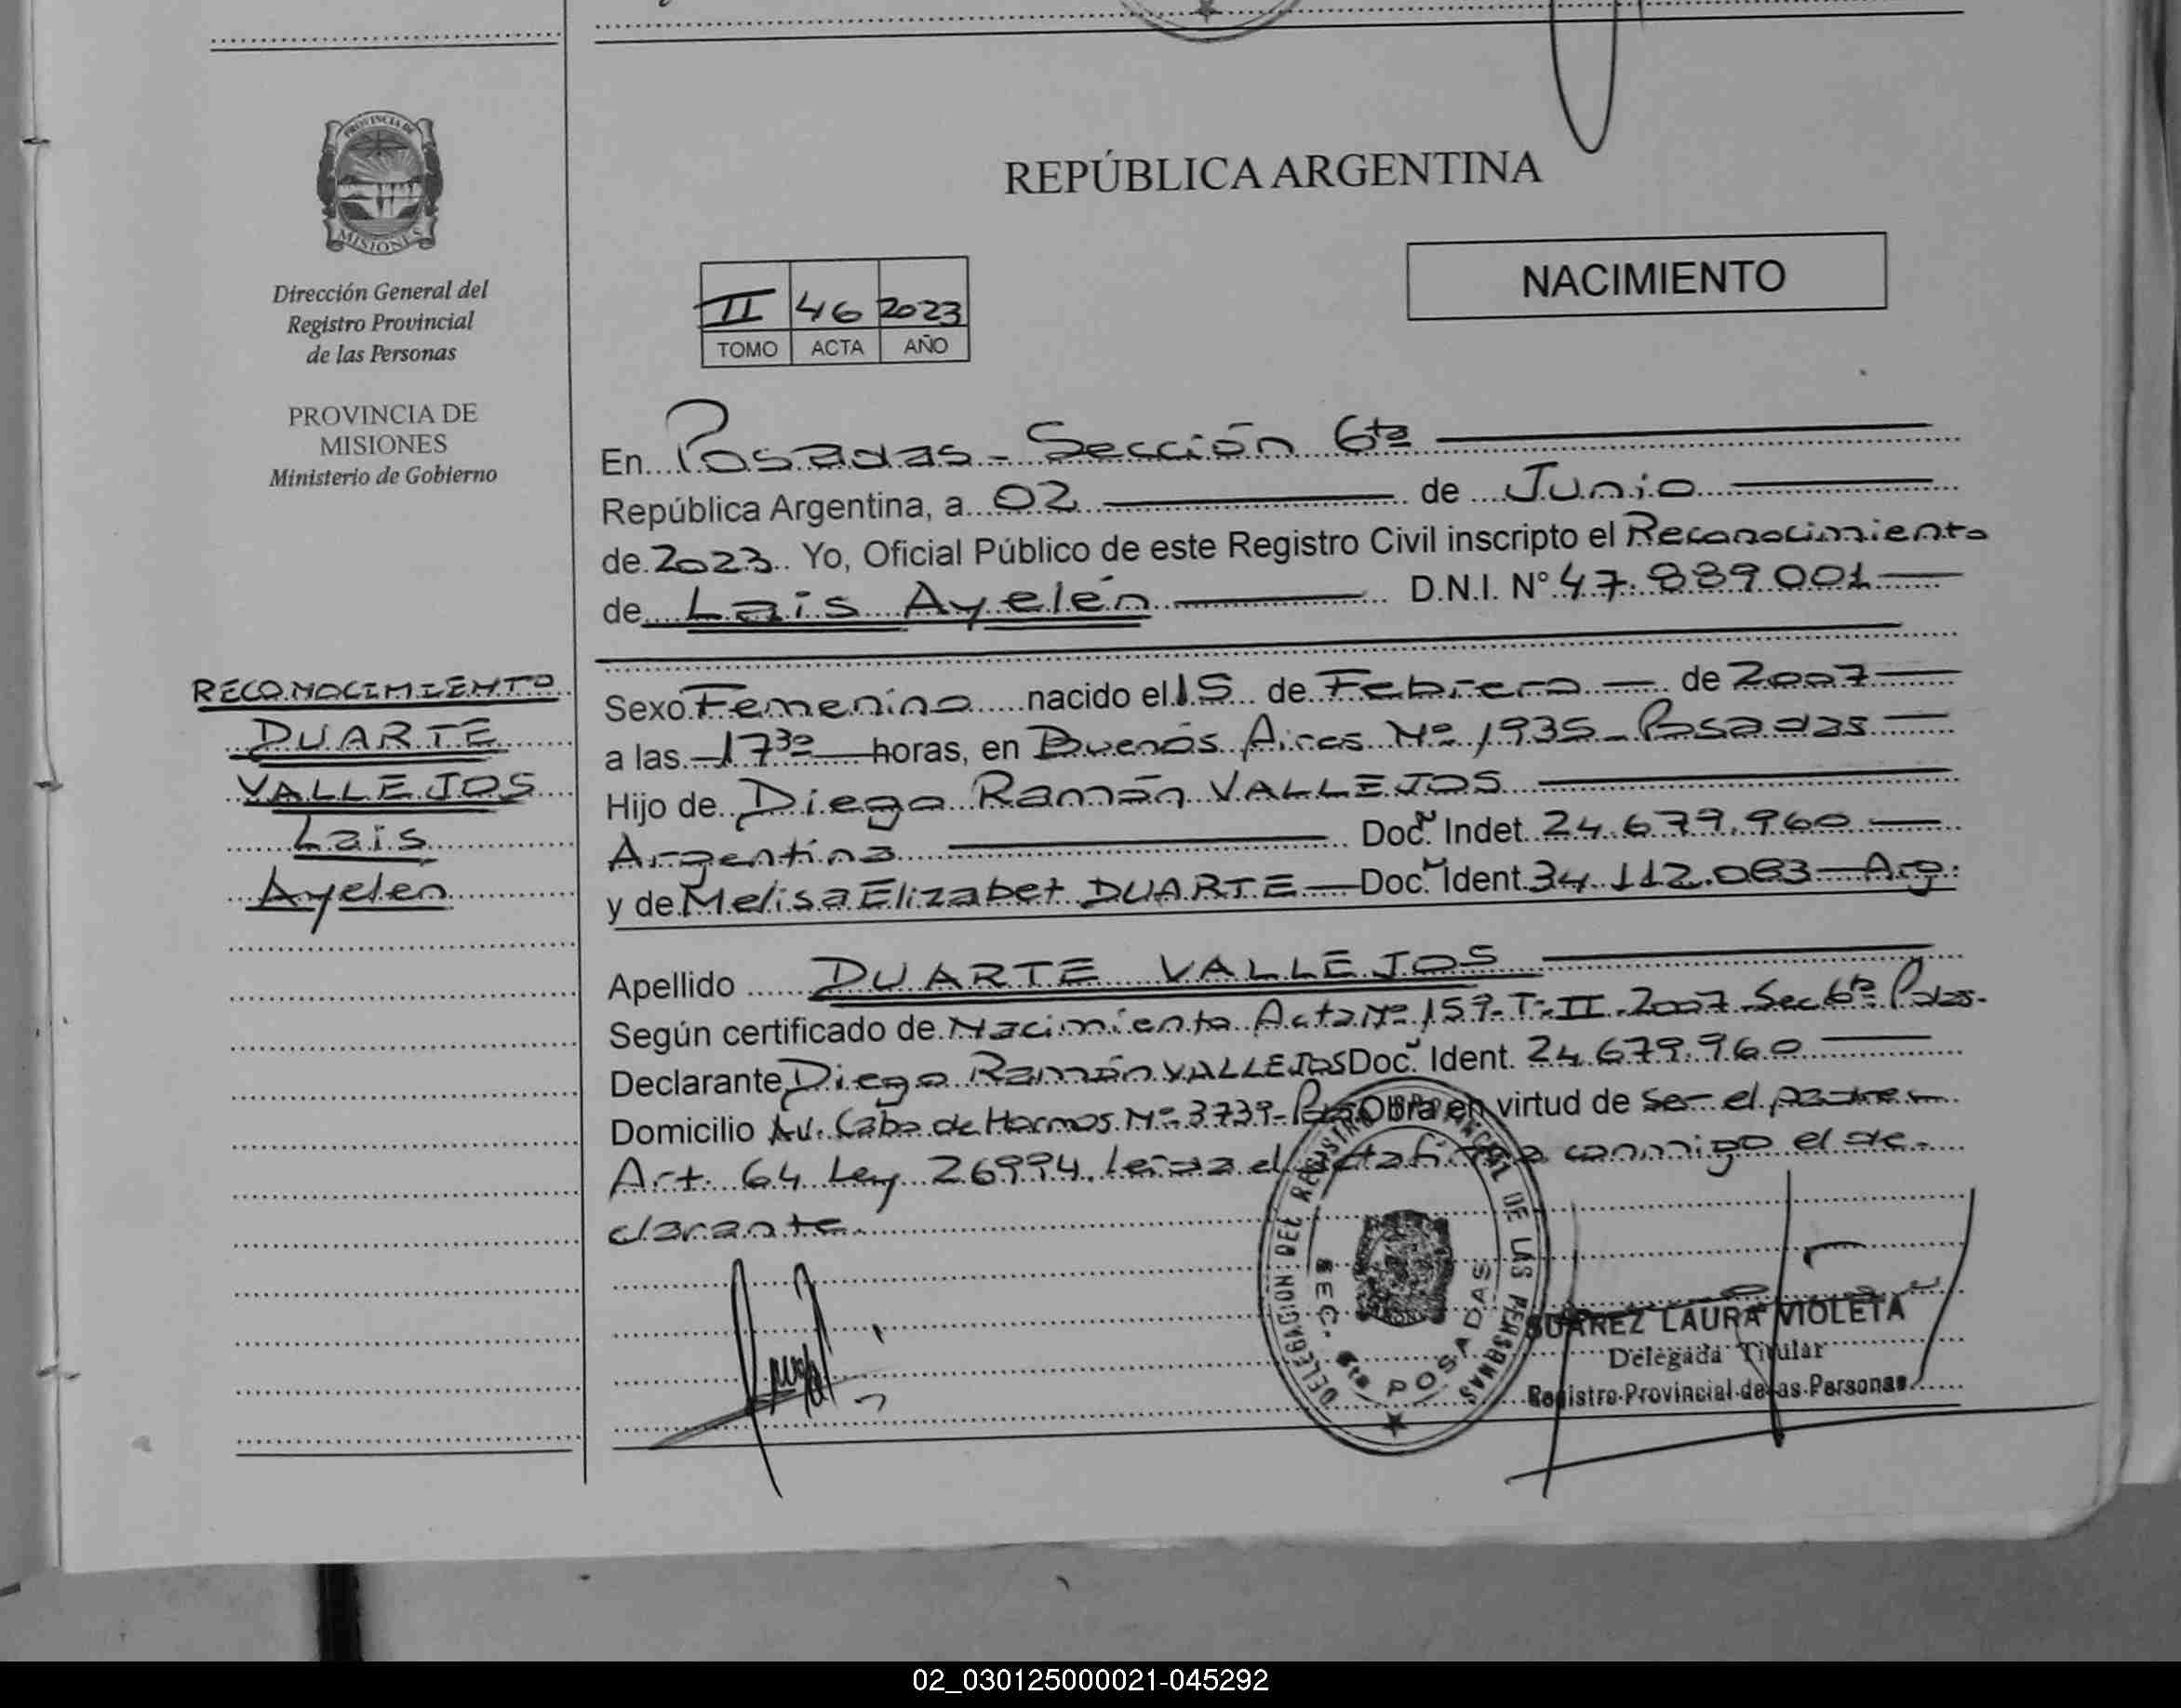 PROVINCIA DE
MISIONES
Dirección General del
Registro Provincial
de las Personas
PROVINCIA DE
MISIONES
Ministerio de Gobierno
RECONOCIMIENTO
DUARTE
VALLEJOS
Lais
Ayelén
REPÚBLICA ARGENTINA
NACIMIENTO
II 46 2023
TOMO ACTA AÑO
En Posadas - Sección 6ta
República Argentina, a 02 de Junio
de 2023. Yo, Oficial Público de este Registro Civil inscripto el Reconocimiento
de Lais Ayelén D.N.I. N° 47.889.001
Sexo Femenino nacido el 15 de Febrero de 2007
a las 17 30 horas, en Buenos Aires Nº 1935 - Posadas
Hijo de Diego Ramón VALLEJOS
Argentina Doc. Indet. 24.679.960
y de Melisa Elizabet DUARTE Doc. Ident. 34.112.083 Arg.
Apellido DUARTE VALLEJOS
Según certificado de Nacimiento Acta Nº 159-T-II-2007 Sec 6ta Pdas.
Declarante Diego Ramón VALLEJOS Doc. Ident. 24.679.960
Domicilio Av. Cabo de Hornos Nº 3739- Obra en virtud de ser el padre
Art. 64 Ley 26994. leída el acta firma conmigo el de-
clarante.
DELEGACION DEL REGISTRO PROVINCIAL DE LAS PERSONAS
SEC. 6ta POSADAS
SUAREZ LAURA VIOLETA
Delegada Titular
Registro Provincial de las Personas
02_030125000021-045292